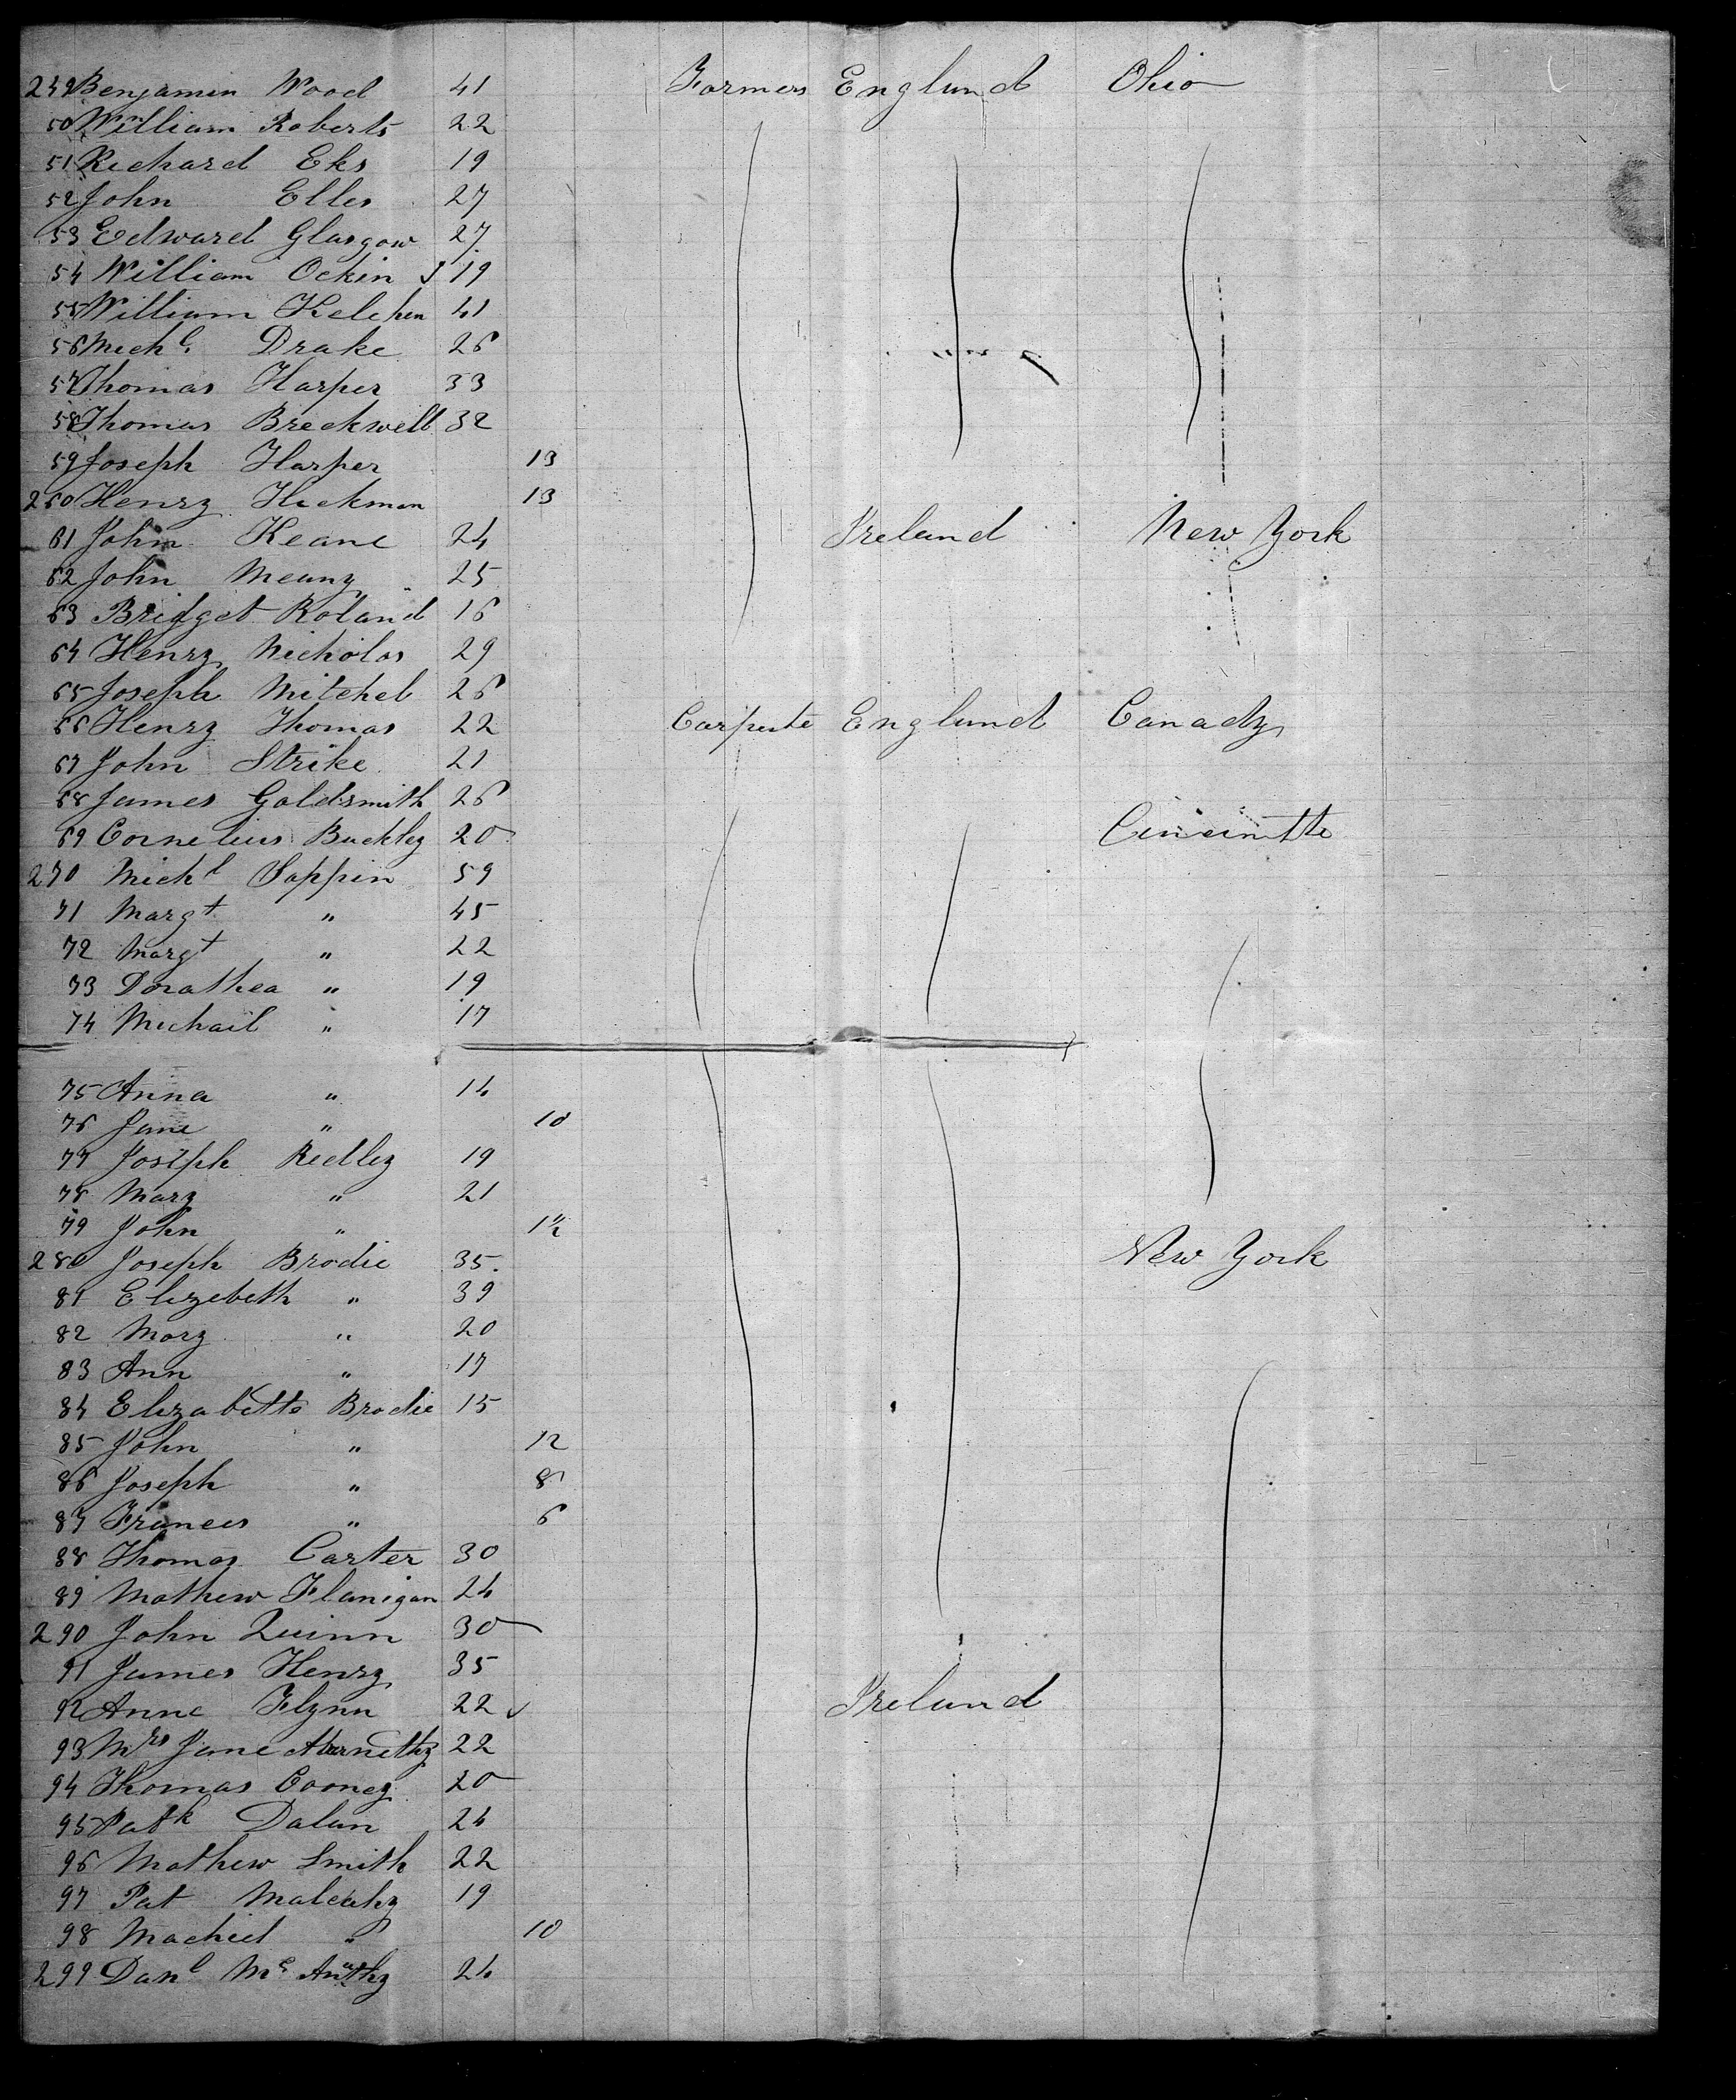 249 Benjamin Wood 41 Farmers England Ohio
50 William Roberts 22
51 Richard Eks 19
52 John Elles 27
53 Edward Glasgow 27
54 William Ockin 19
55 William Kelchen 41
56 Mich l. Drake 26
57 Thomas Harper 33
58 Thomas Breckwell 32
59 Joseph Harper 13
260 Henry Hickman 13
61 John Keane 24 Ireland New York
62 John Meany 25
63 Bridget Roland 16
64 Henry Nicholas 29
65 Joseph Mitchel 26
66 Henry Thomas 22 Carpente England Canady
67 John Strike 21
68 James Goldsmith 26
69 Cornelius Buckley 20 Cincinatte
270 Mich l Sappin 59
71 Marg t " 45
72 Marg t " 22
73 Dorathea " 19
74 Michail " 17
75 Anna " 14
76 Jane " 10
77 Joseph Redley 19
78 Mary " 21
79 John " 1½
280 Joseph Brodie 35. New York
81 Elizebeth " 39
82 Mary " 20
83 Ann " 17
84 Elizabeth Brodie 15
85 John " 12
86 Joseph " 8
87 Frances " 6
88 Thomas Carter 30
89 Mathew Flanigan 24
290 John Quinn 30
91 James Henry 35
92 Anne Flynn 22 Ireland
93 Mrs Jane Abernethy 22
94 Thomas Cooney 20
95 Patk Dalan 24
96 Mathew Smith 22
97 Pat Malcahy 19
98 Machiel " 10
299 Dan l Mc 24